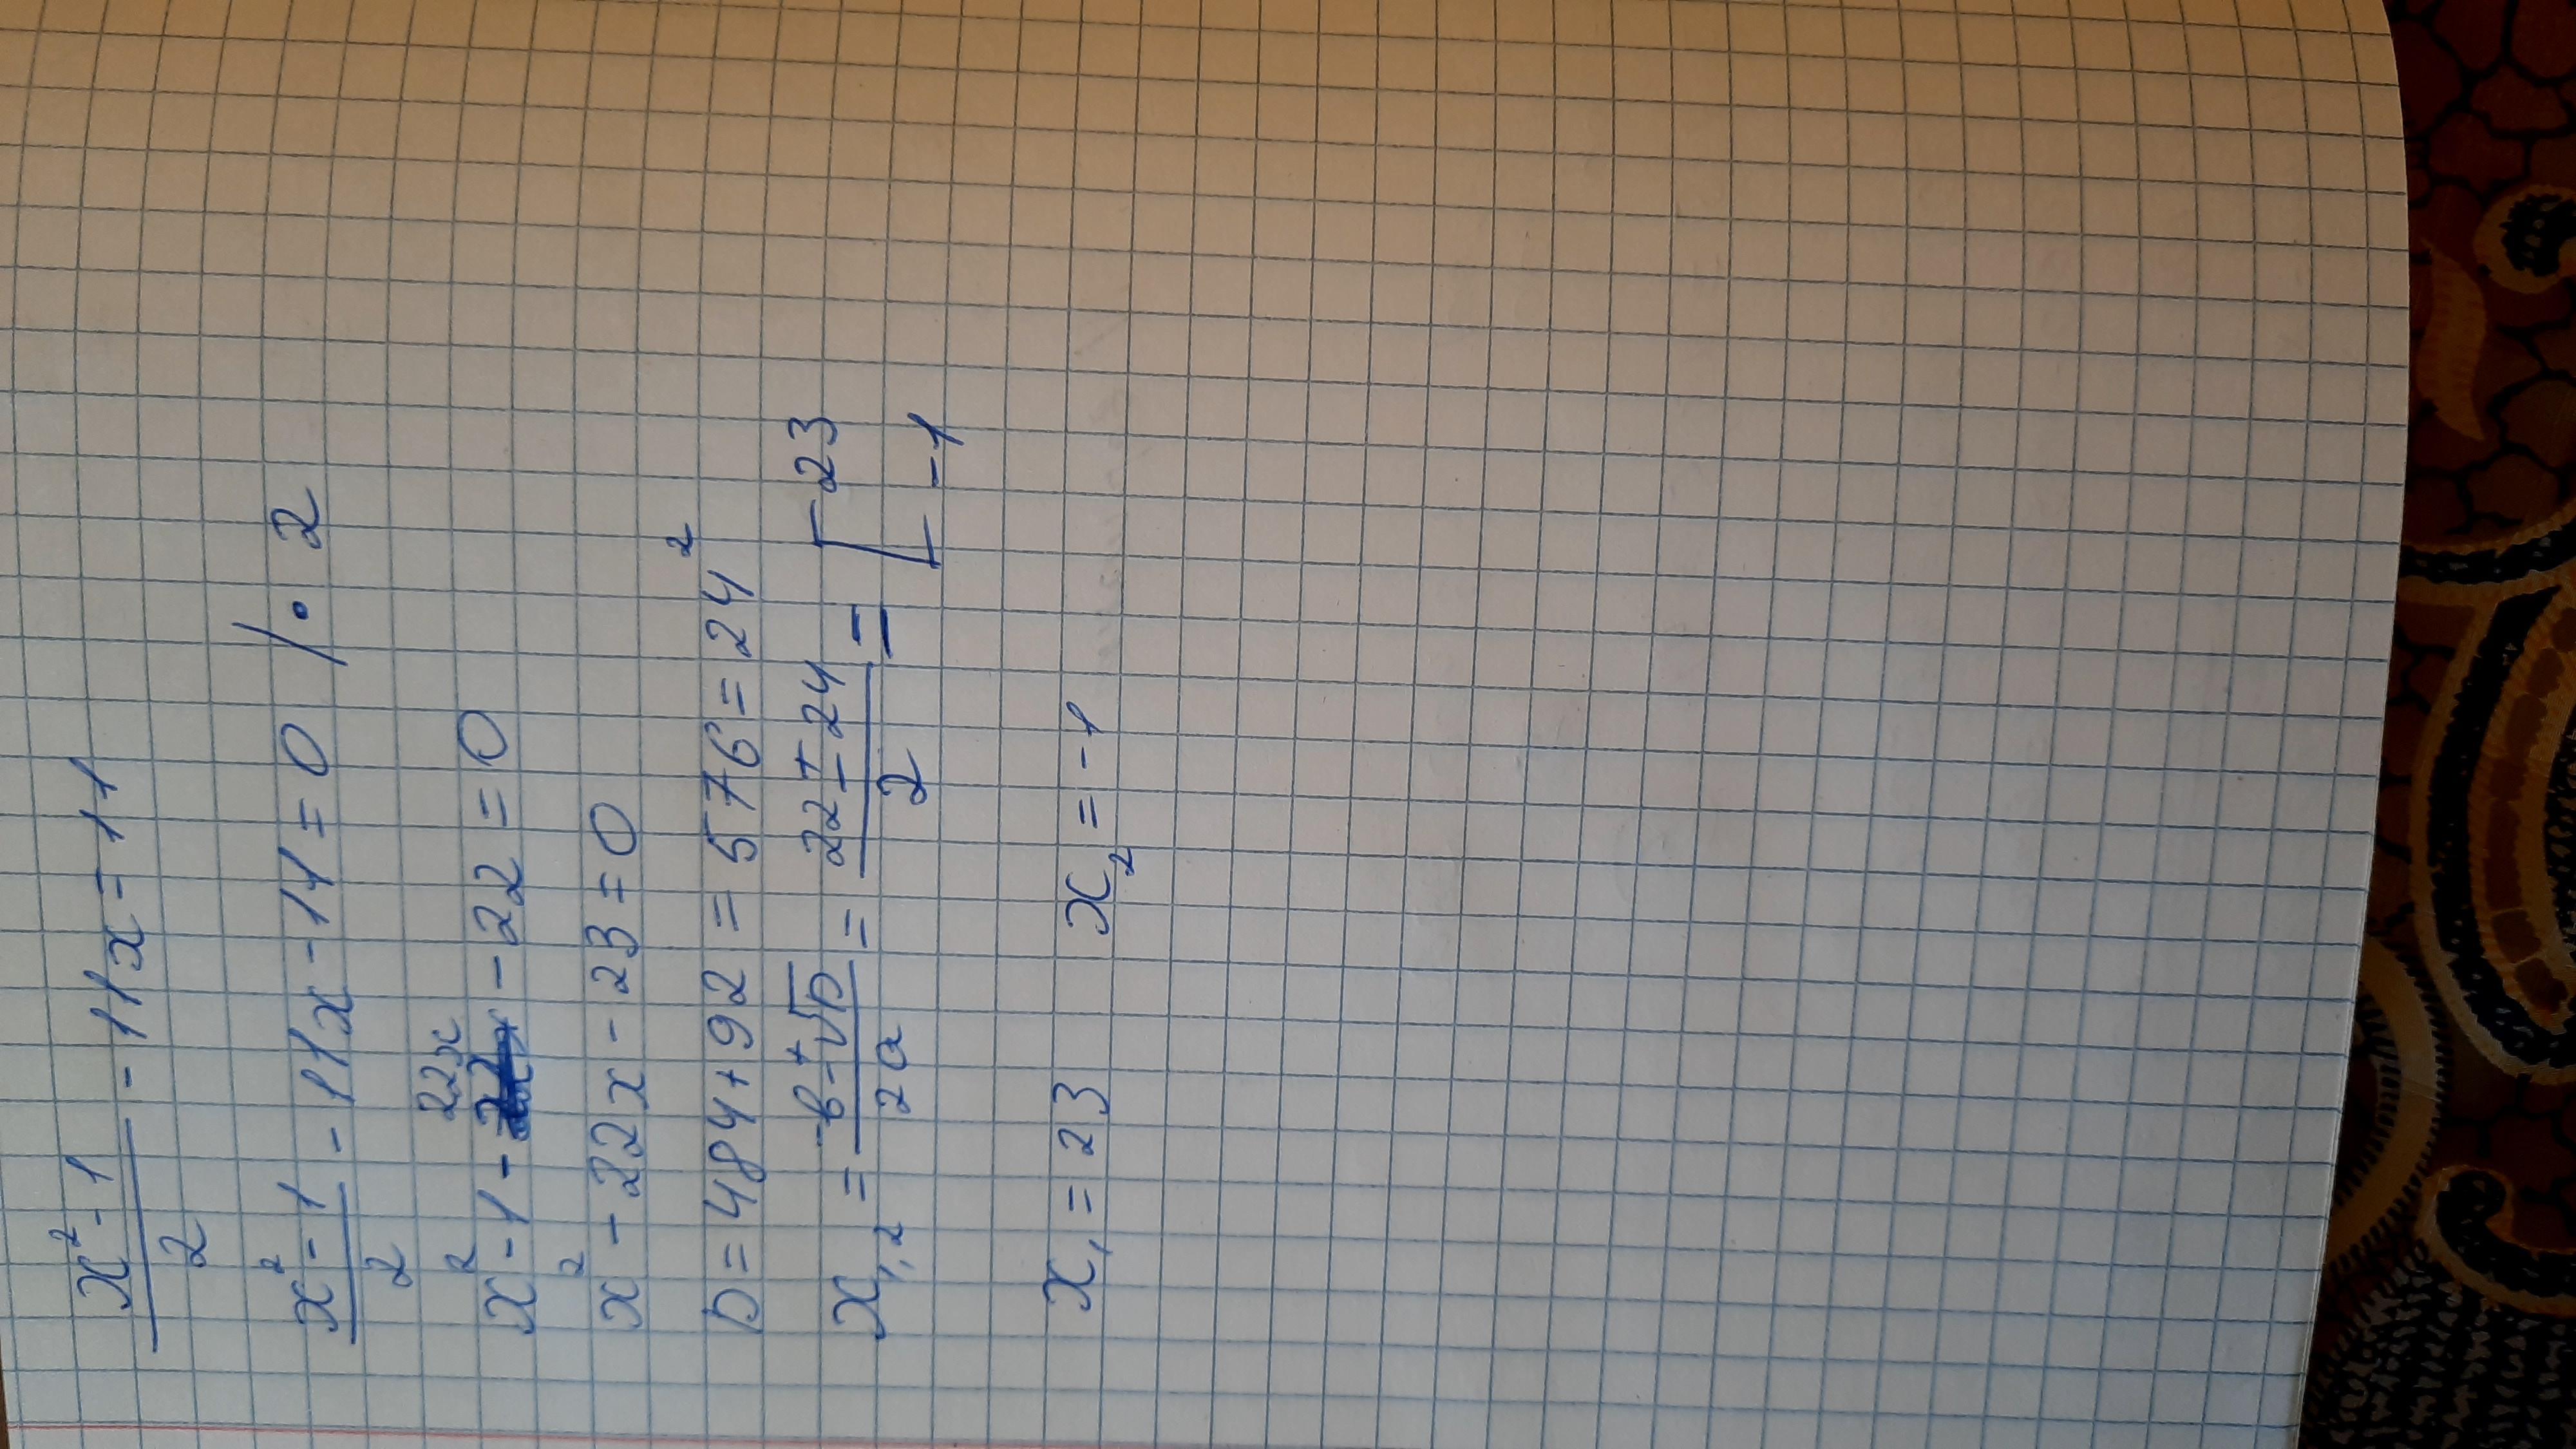 x²-1/2 - 11x = 11
x²-1/2 - 11x - 11 = 0 /· 2
x² - 1 - 22x - 22 = 0
x² - 22x - 23 = 0
D = 484 + 92 = 576 = 24²
x₁,₂ = -b±√D/2a = 22±24/2 = [23 -1
x₁ = 23 x₂ = -1